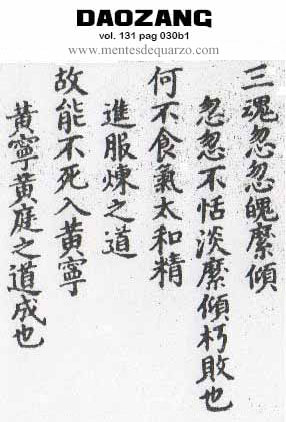 DAOZANG
vol. 131 pag 030b1
www.mentesdequarzo.com
三魂忽忽魄縻傾
忽忽不恬淡縻傾朽敗也
何不食氣太和精
進服煉之道
故能不死入黃寧
黃寧黃庭之道成也